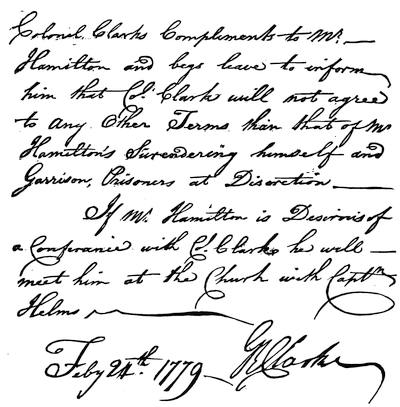 Colonel Clarks Compliments to Mr.
Hamilton and begs leave to inform
him that Col. Clark will not agree
to any Other Terms than that of Mr
Hamilton's Surendering himself and
Garrison, Prisoners at Discretion
If Mr. Hamilton is Desirous of
a Conferance with Col. Clark he will
meet him at the Church with Captn
Helms
Feby 24th 1779 GRClark